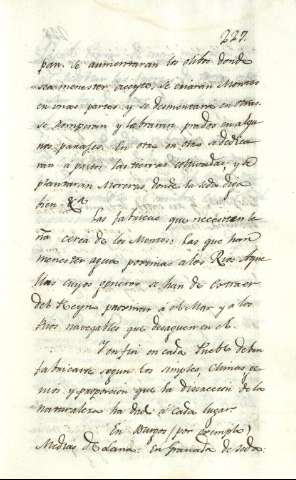 227.
pan. Se aumentaran los olibos donde
sea menester aceyte, se criarán Montes
en unas partes y se desmontara en otras.
se romperan y labraran prados en algu-
nos parages. En otra
ran á pastos las tierras cultivadas, y se
plantarán Moreras donde la seda diga
bien &a.
Las fabricas que necesitan le-
ña cerca de los Montes; las que han
menester agua proxima a los Rios. Aque-
llas cuyos generos se han de extraer
del Reyno proximas al Mar y a los
Rios navegables que desaguen en el.
En fin en cada Pueblo deben
fabricarse segun los simples, Climas, ge-
nios y proporcion que la direccion de la
naturaleza ha dado á cada lugar.
En Burgos (por exemplo)
Medias de Lana. En Granada de seda.